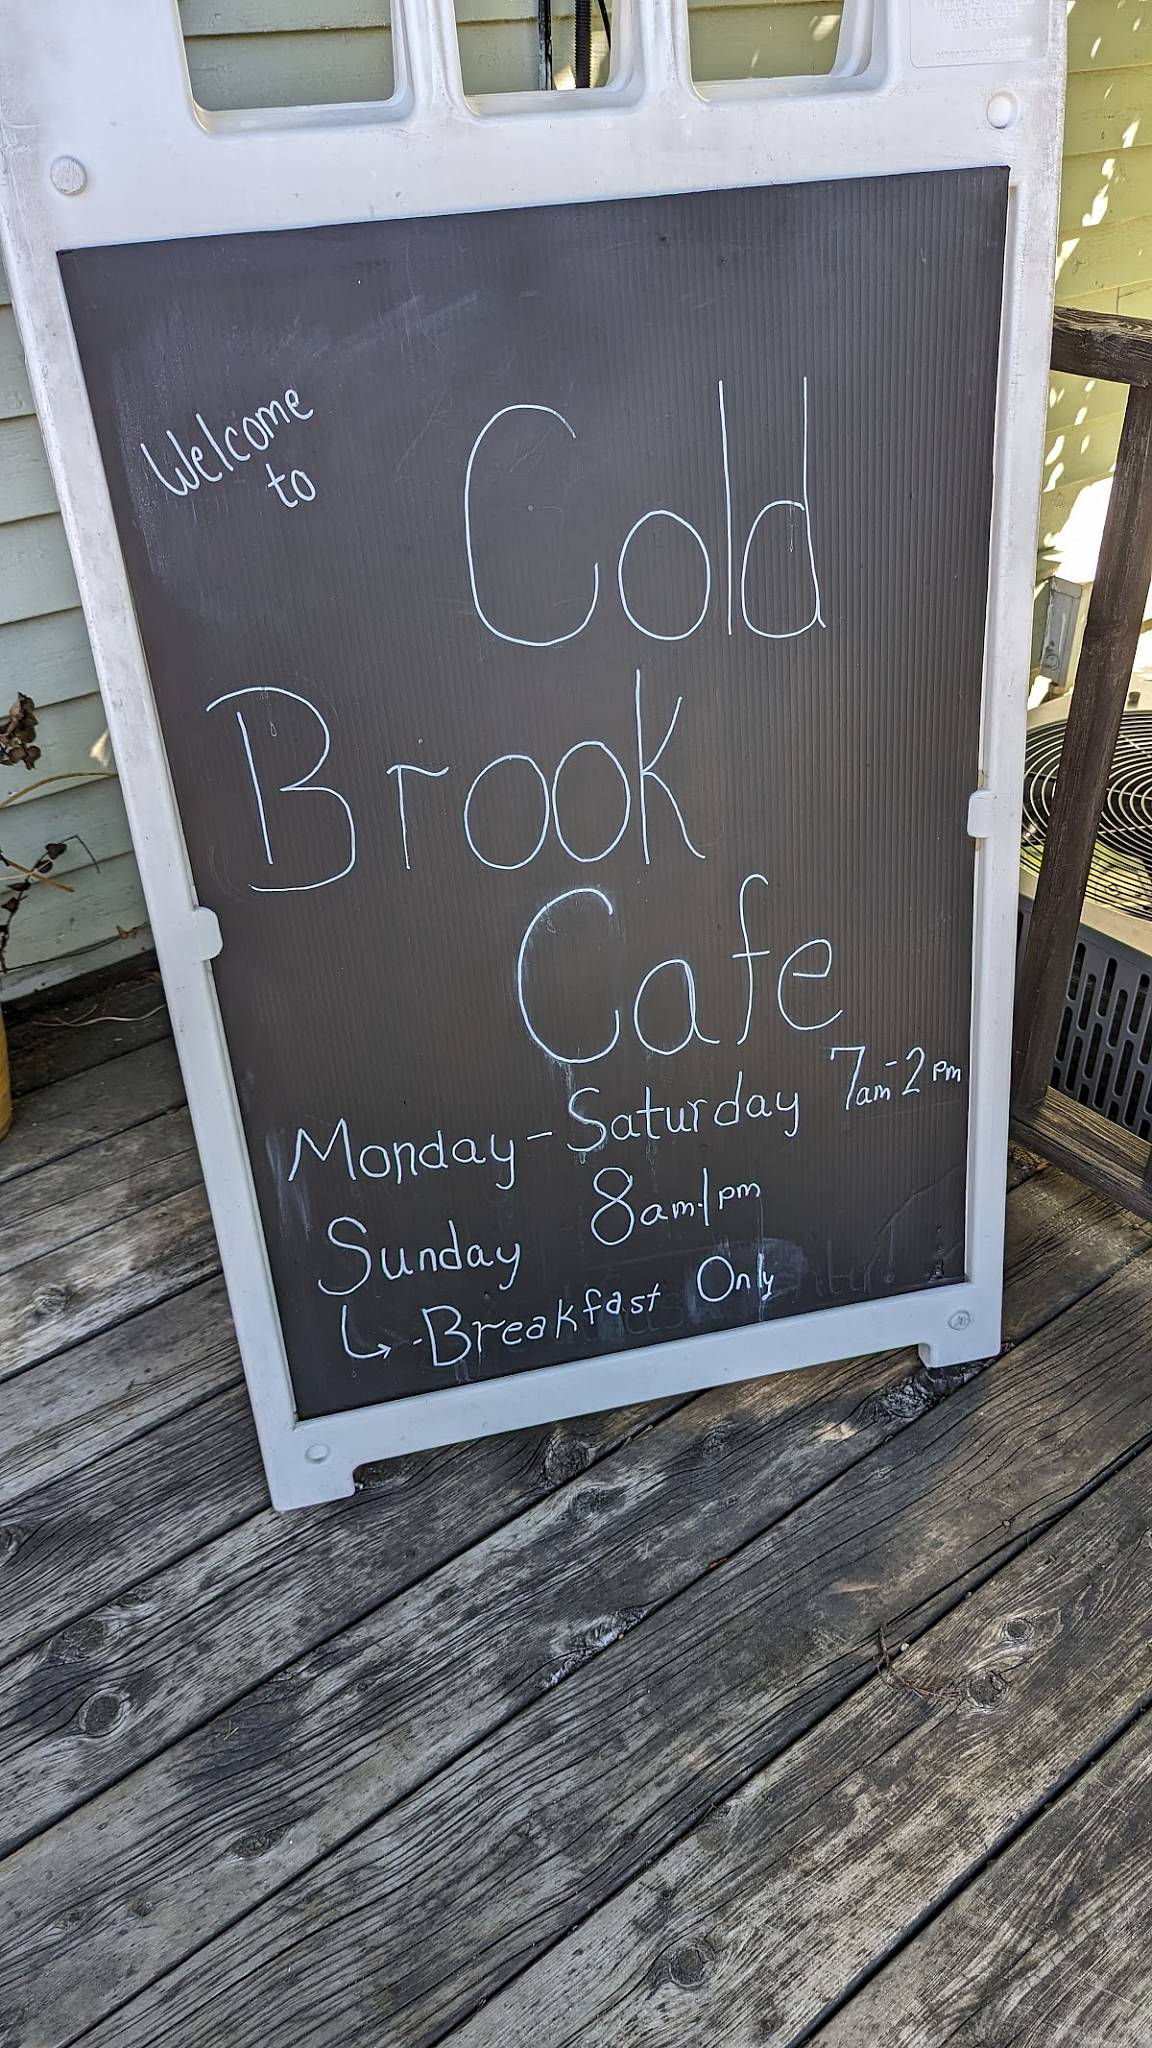 Welcome
to
Cold
Brook
Cafe
Monday - Saturday 7am-2pm
Sunday 8am-1pm
↳ -Breakfast Only